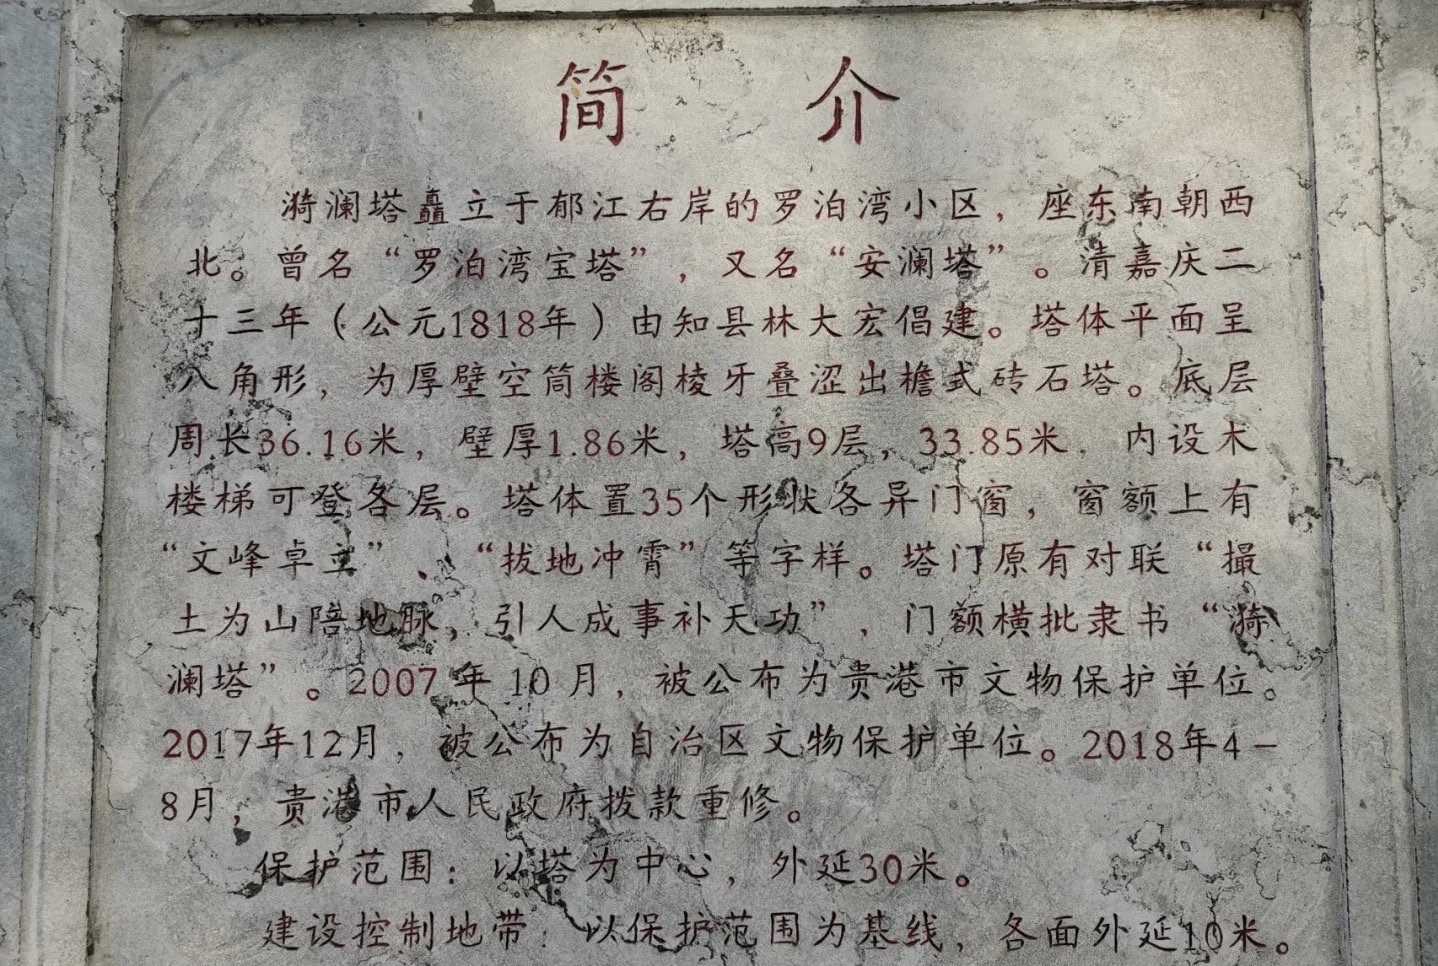 简 介
漪澜塔矗立于郁江右岸的罗泊湾小区，座东南朝西
北。曾名“罗泊湾宝塔”，又名“安澜塔”。清嘉庆二
十三年（公元1818年）由知县林大宏倡建。塔体平面呈
八角形，为厚壁空筒楼阁棱牙叠涩出檐式砖石塔。底层
周长36.16米，壁厚1.86米，塔高9层，33.85米．内设木
楼梯可登各层。塔体置35个形状各异门窗，窗额上有
“文峰卓立”、“拔地冲霄”等字样。塔门原有对联“撮
土为山陪地脉，引人成事补天功”，门额横批隶书“漪
澜塔”。2007年10月，被公布为贵港市文物保护单位。
2017年12月，被公布为自治区文物保护单位。2018年4－
8月，贵港市人民政府拨款重修。
保护范围：以塔为中心，外延30米。
建设控制地带：以保护范围为基线，各面外延10米。